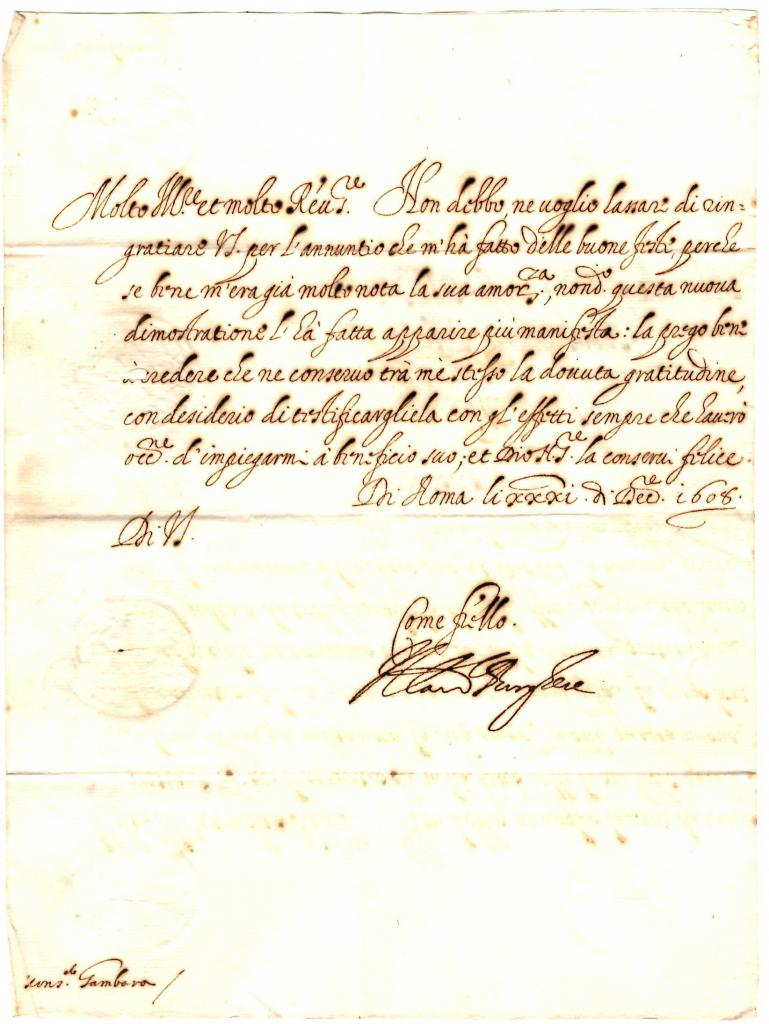 Molto Ill.re et molto Reu.S.re Non debbo, ne uoglio lassare di rin-
gratiare VS. per l'annuntio che m'hà fatto delle buone feste, perche
se bene m'era già molto nota la sua amor.za, nond.o questa nuoua
dimostratione l'hà fatta apparire più manifesta: la prego bene
à credere che ne conseruo trà me stesso la douuta gratitudine,
con desiderio di testificargliela con gl'effetti sempre che hauerò
occ.ne d'impiegarmi à beneficio suo; et Dio N.S.re la conserui felice.
Di Roma li xxxi. di Dec.re 1608.
Di VS.
Come fr̃ello.
Il Card. Burghese
Mons.re Gambara